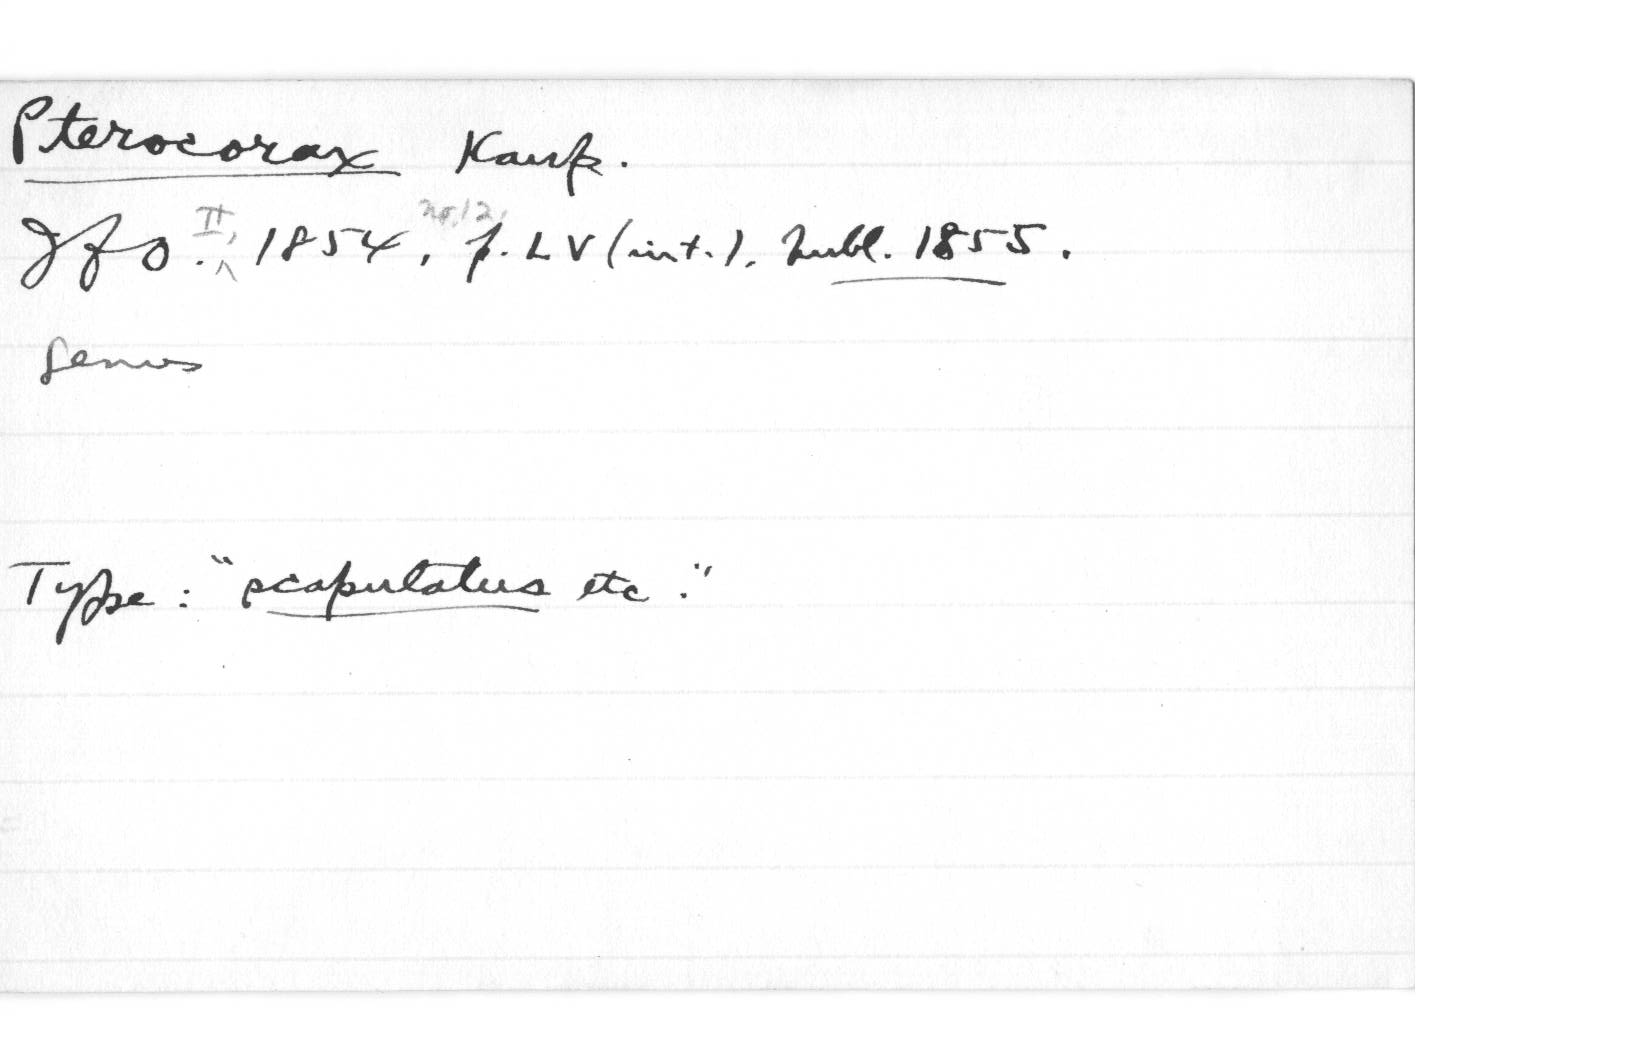 Pterocorax Kaup.
JfO. II, 1854, no. 12, p. LV (int.), publ. 1855.
Genus
Type: "scapulatus etc."